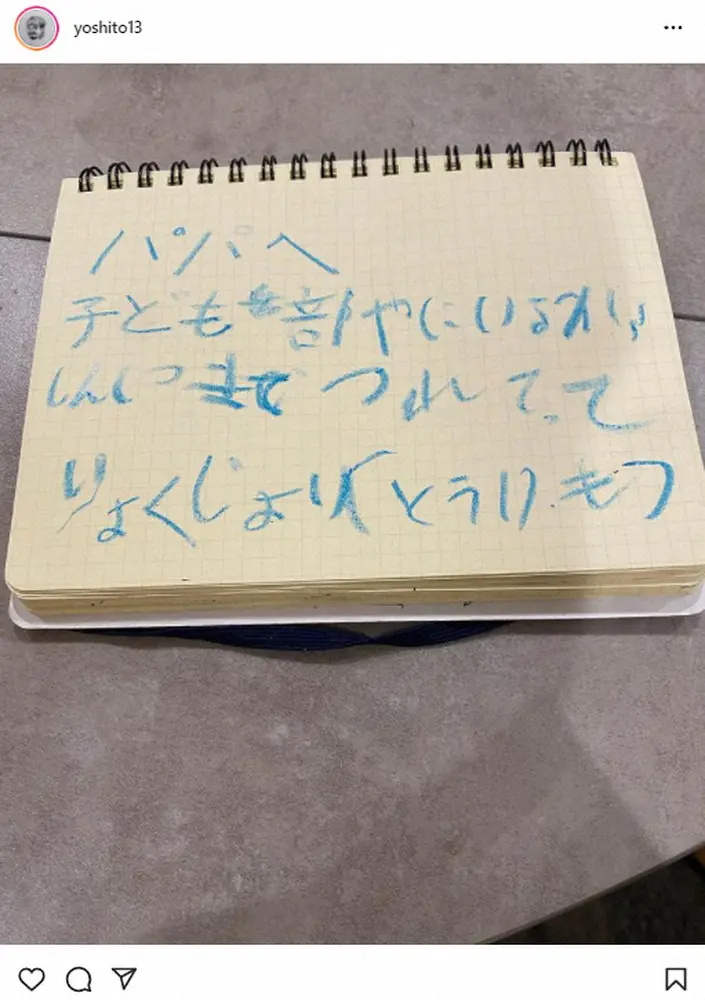 yoshito13
パパへ
子ども部やにいるから
しんしつまでつれてって
りょくじょ とうけもつ